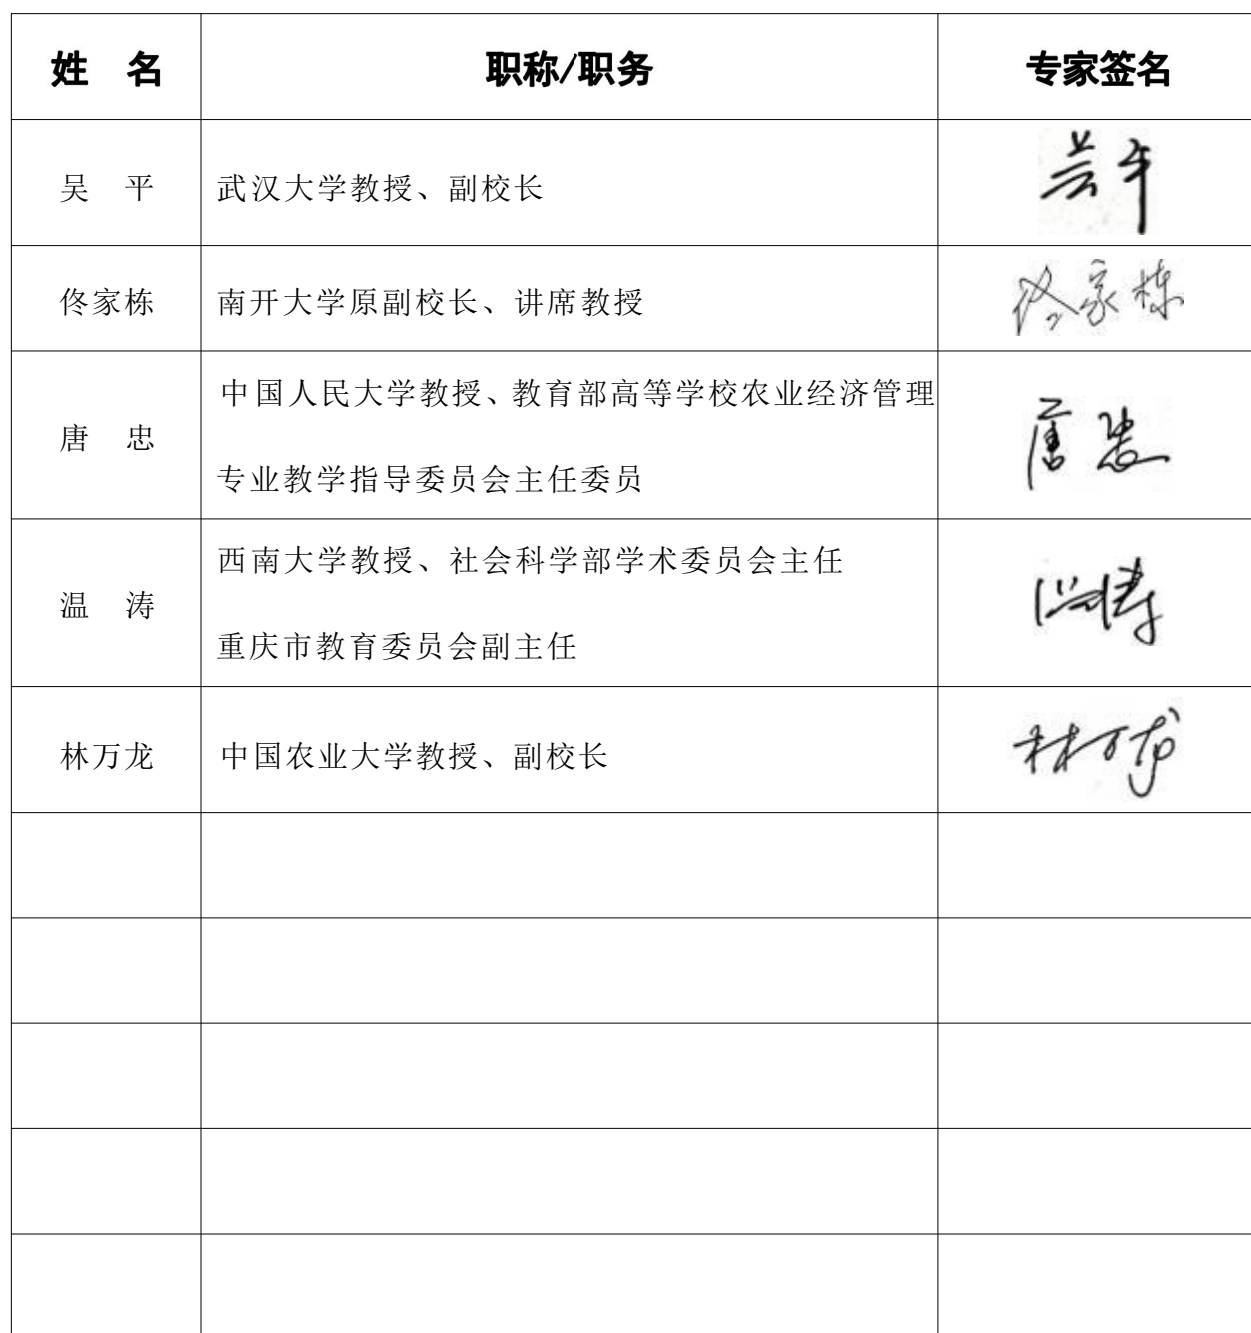 姓 名 职称/职务 专家签名
吴 平 武汉大学教授、副校长 吴平
佟家栋 南开大学原副校长、讲席教授 佟家栋
唐 忠 中国人民大学教授、教育部高等学校农业经济管理 唐忠
专业教学指导委员会主任委员
温 涛 西南大学教授、社会科学部学术委员会主任 温涛
重庆市教育委员会副主任
林万龙 中国农业大学教授、副校长 林万龙